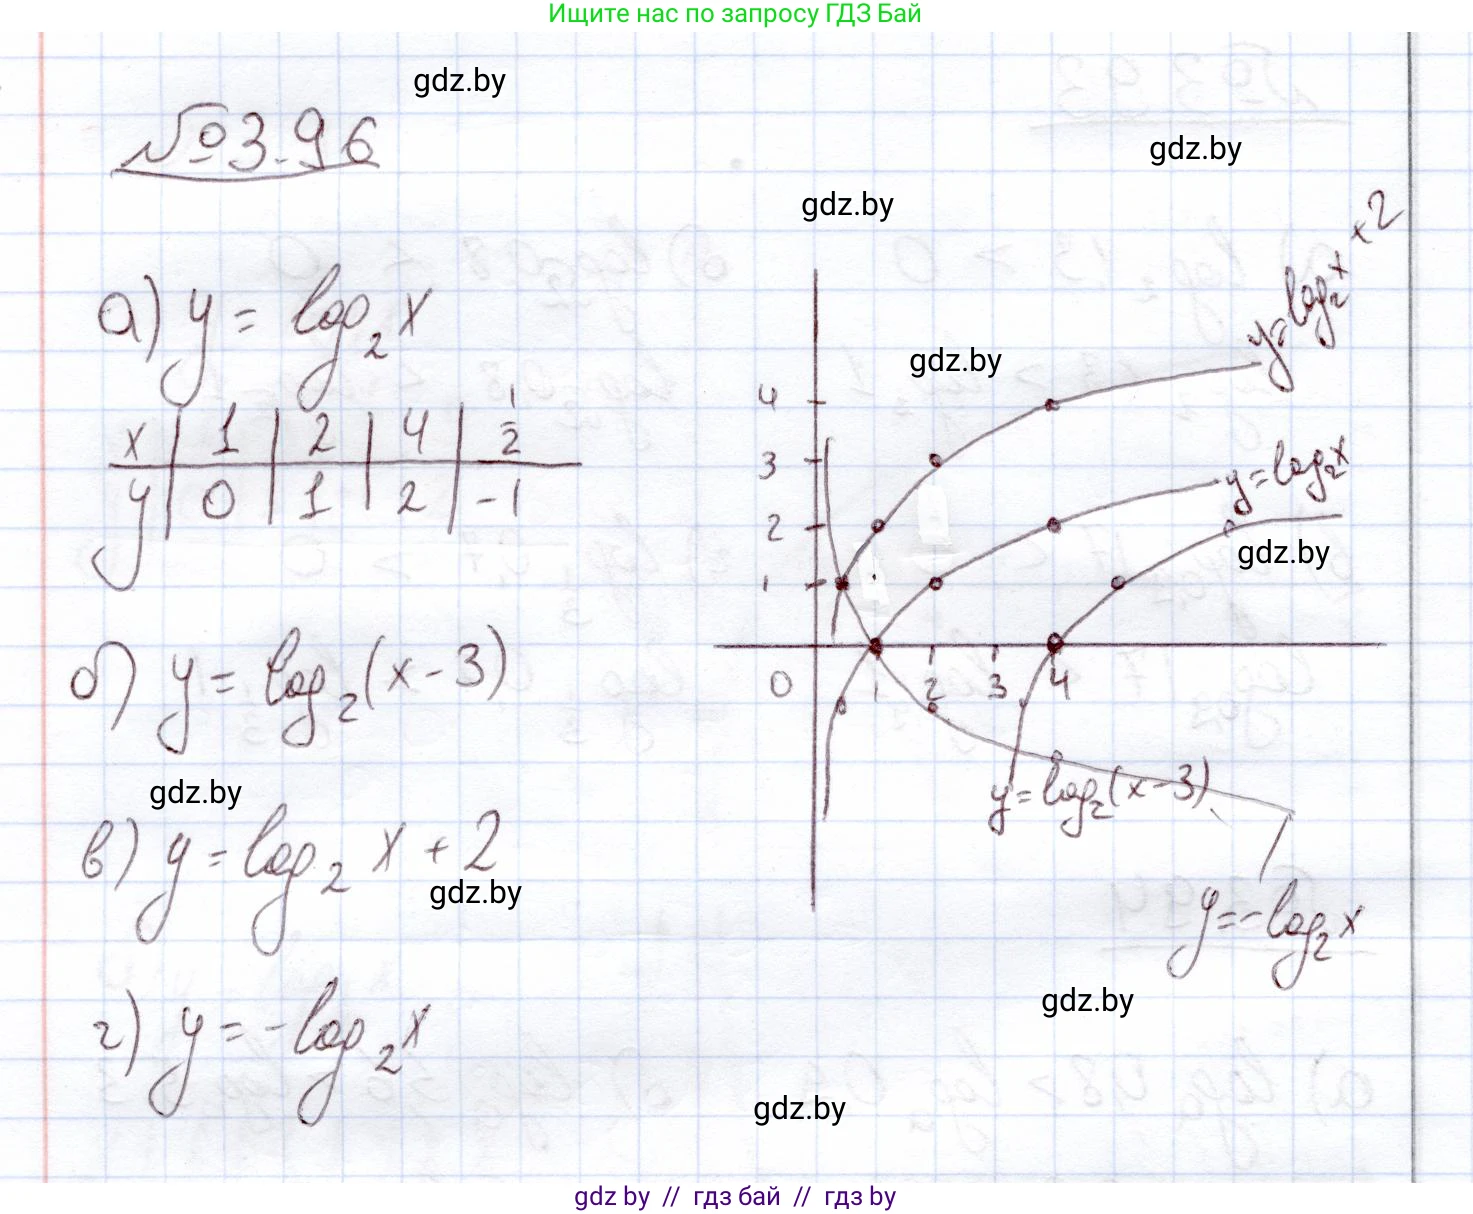 Ищите нас по запросу ГДЗ Бай
gdz.by
№3.96
gdz.by
gdz.by
а) y = log₂x
x | 1 | 2 | 4 | 1/2
y | 0 | 1 | 2 | -1
б) y = log₂(x-3)
gdz.by
в) y = log₂ x + 2
gdz.by
г) y = -log₂x
y=log₂x+2
gdz.by
4
3
y=log₂x
2
gdz.by
1
0 1 2 3 4
y=log₂(x-3)
y=-log₂x
gdz.by
gdz.by
gdz by // гдз бай // гдз by